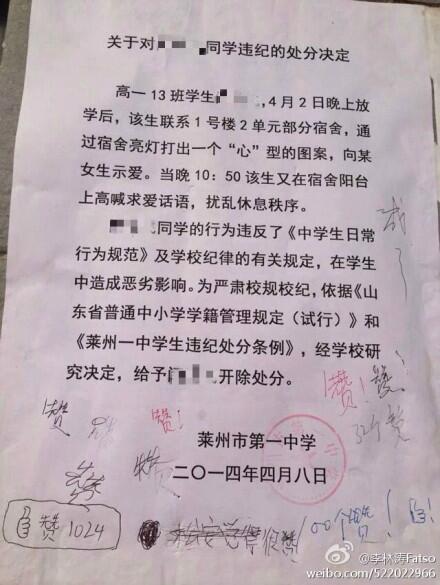 关于对同学违纪的处分决定
高一13班学生,4月2日晚上放
学后，该生联系1号楼2单元部分宿舍，通
过宿舍亮灯打出一个“心”型的图案，向某
女生示爱。当晚10：50该生又在宿舍阳台
上高喊求爱话语，扰乱休息秩序。
同学的行为违反了《中学生日常
行为规范》及学校纪律的有关规定，在学生
中造成恶劣影响。为严肃校规校纪，依据《山
东省普通中小学学籍管理规定（试行）》和
《莱州一中学生违纪处分条例》，经学校研
究决定，给予开除处分。
赞! 赞!
赞 赞!
莱州市第一中学
二〇一四年四月八日
赞 1024
100个赞!
@李林涛Fatso
weibo.com/522022966